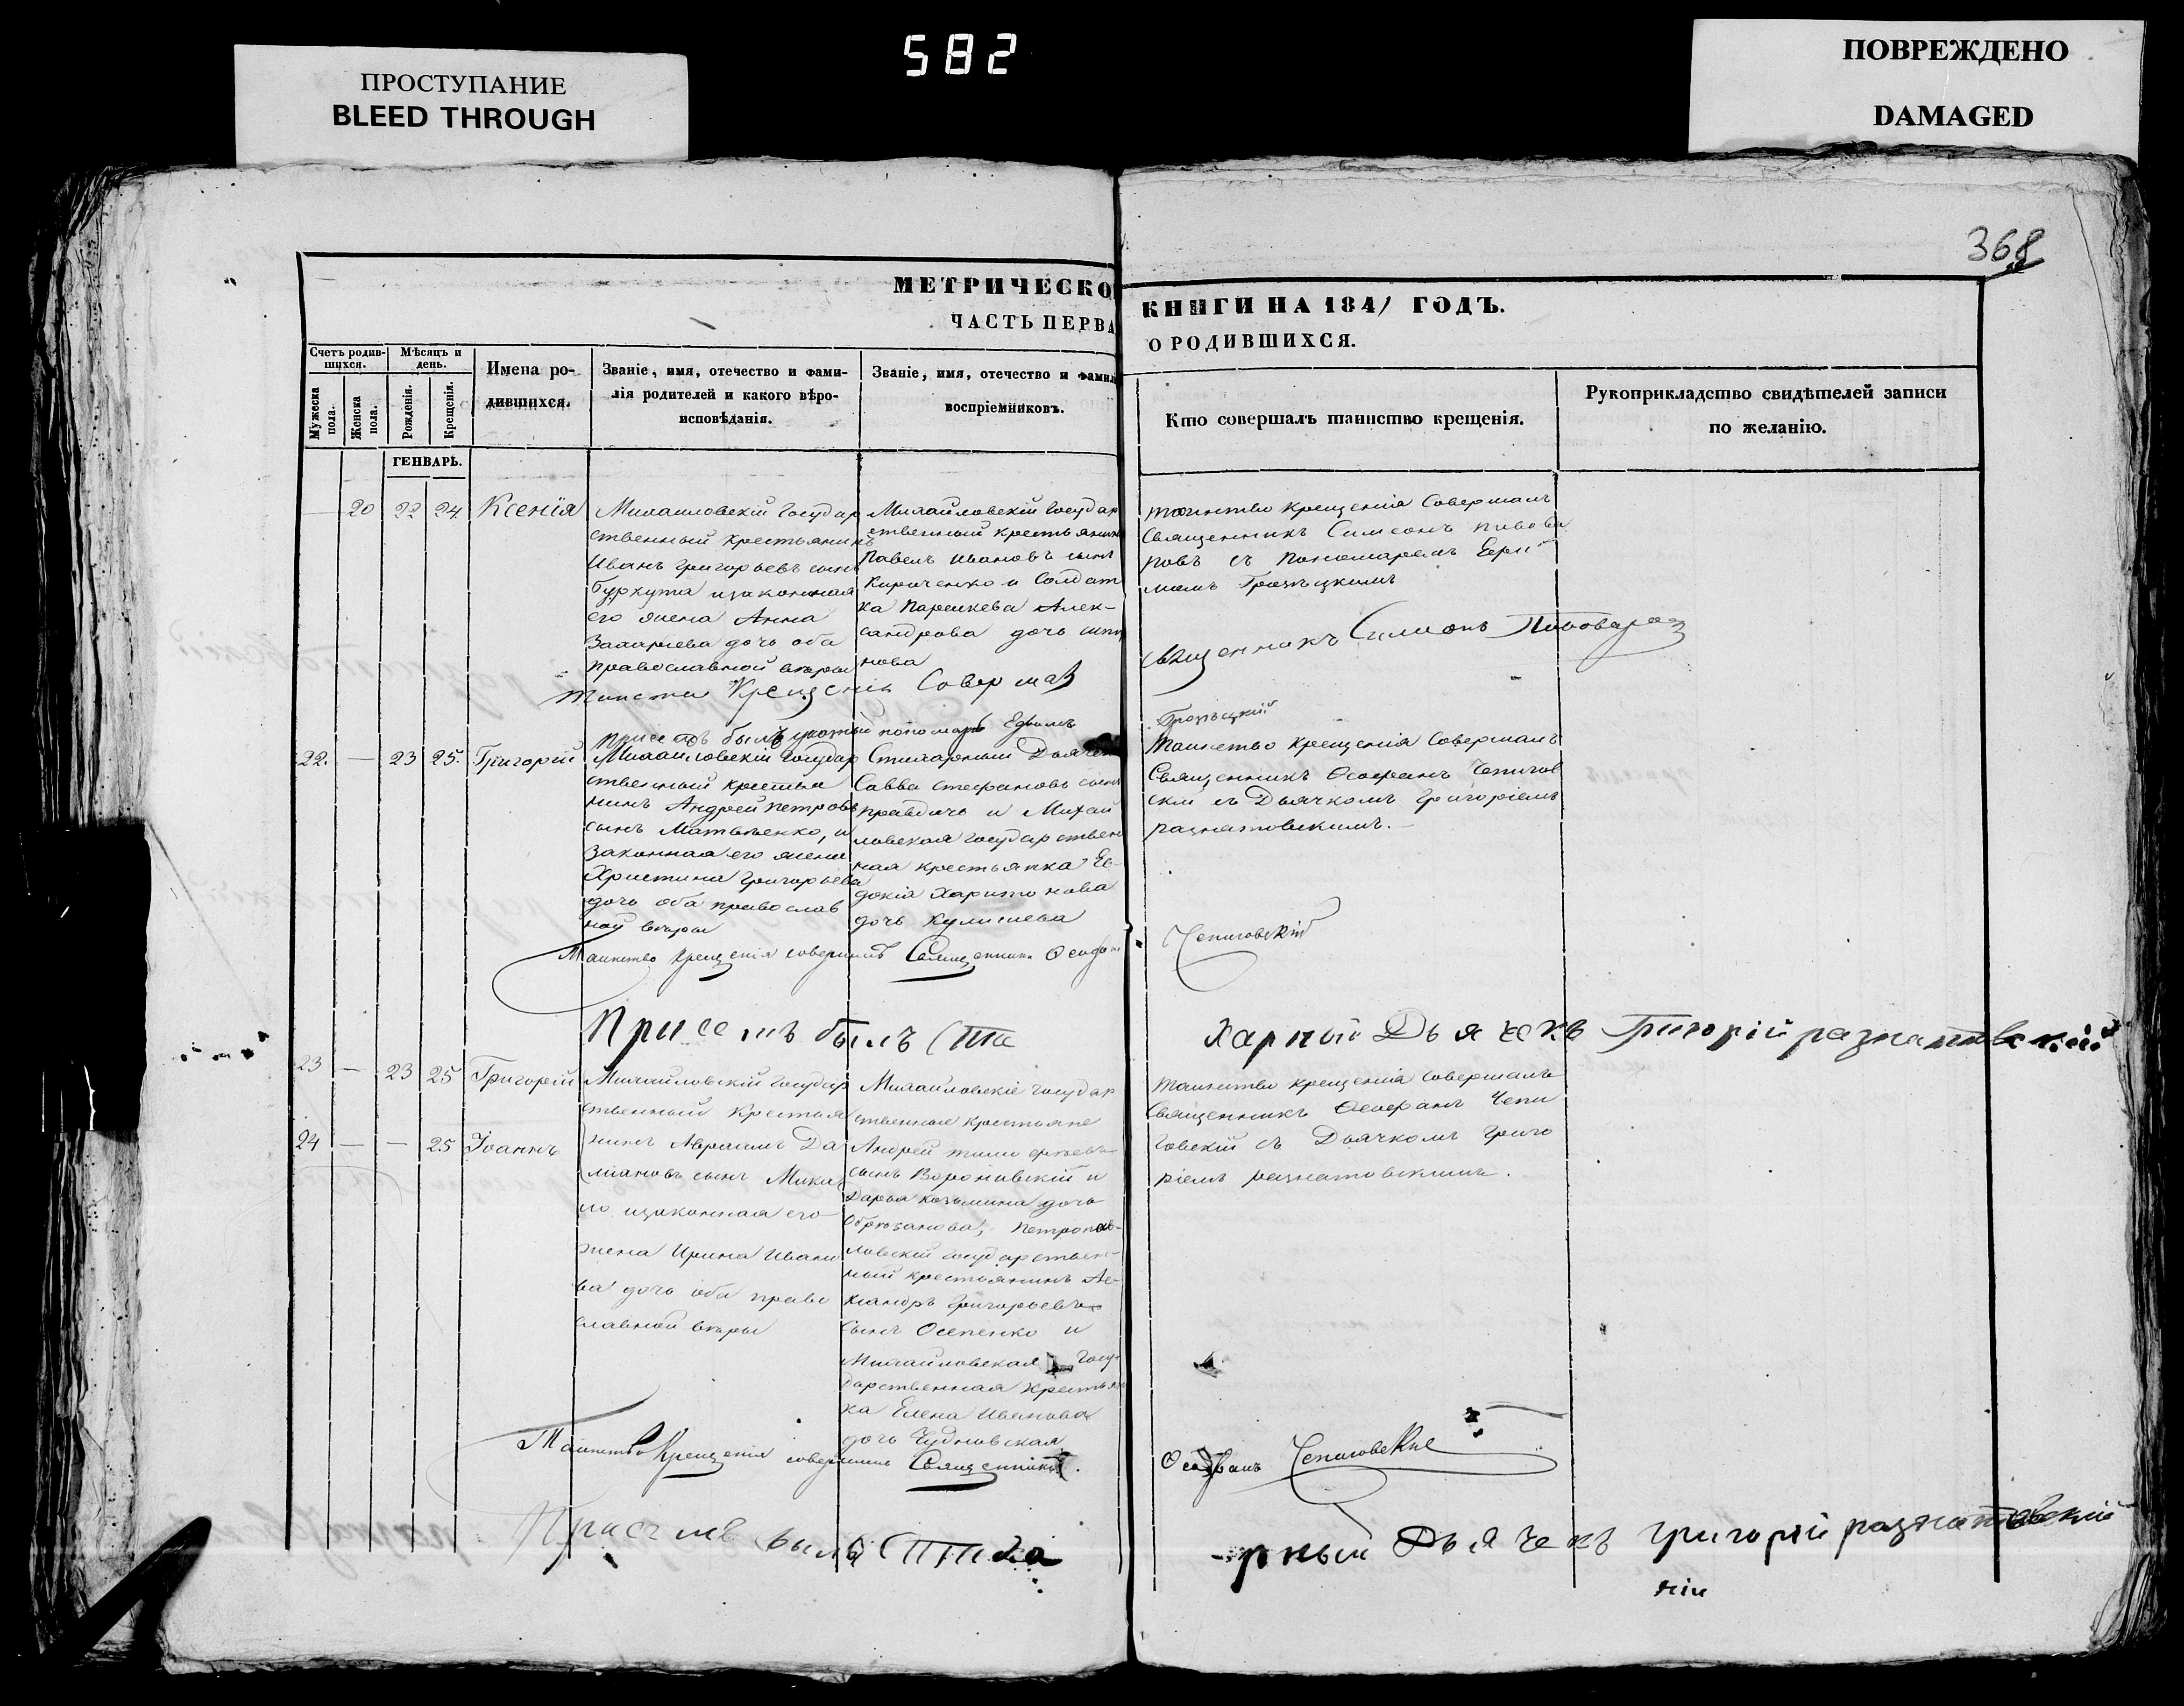 ПРОСТУПАНИЕ
BLEED THROUGH
582
ПОВРЕЖДЕНО
DAMAGED
368
МЕТРИЧЕСКО
ЧАСТЬ ПЕРВА
КНИГИ НА 1841 ГОДЪ.
О РОДИВШИХСЯ.
Счетъ родив-
шихся.
Мужеска
пола.
Женска
пола.
Мѣсяцъ и
день.
Рожденія.
Крещенія.
Имена ро-
дившихся.
Званіе, имя, отечество и фами-
лія родителей и какого вѣро-
исповѣданія.
Званіе, имя, отечество и фамил
воспріемниковъ.
Кто совершалъ таинство крещенія.
Рукоприкладство свидѣтелей записи
по желанію.
ГЕНВАРЬ.
20 22 24 Ксенія
Михаиловскій государ
ственный крестьянинъ
Иванъ Григорьевъ сынъ
Буркута изаконная
его жена Анна
Захарiева дочь оба
православной вѣры
Михайловскій государ
ственный крестьянин
Павелъ Ивановъ сынъ
Кириченко и Солдат
ка Параскева Алек-
сандрова дочь
нова
таинство крещенія Совершалъ
Священникъ Симеонъ Пивова
ровъ съ Пономаремъ
Грозъцкимъ
Священникъ Симеонъ Пивоваров
Крещенія Совершал
при семъ былъ пономарь
Грозъцкій
22. — 23 25. Григорій
Михайловскій государ
ственный крестья
нинъ Андрей Петровъ
сынъ Матвѣенко, и
законная его жена
Христина Григорьева
дочь оба православ
ной вѣры
Стихарный Дьячек
Савва Стефановъ сынъ
и Михай
ловская государствен
ная крестьянка Ев-
докія Харитонова
дочь Кулишева
Таинство крещенія Совершалъ
Священникъ Ѳеофанъ Чепигов
скій съ Дьячкомъ Григоріемъ
разнатовскимъ.
Таинство крещенія совершилъ Священникъ Ѳеофан
Чепиговскій
При семъ былъ Сти
харный Дьячекъ Григорій разнатовскій
23 — 23 25 Григорій
24 — — 25 Іоаннъ
Михайловскій государ
ственный крестья
нинъ Авраамъ Да
міановъ сынъ Мика
ло изаконная его
жена Ирина Ивано
ва дочь оба право
славной вѣры
Михайловскіе государ
ственные крестьяне
Андрей Тимофѣевъ
сынъ Вороновскій и
Дарья Козьмина дочь
Петропав-
ловскій государствен-
ный крестьянинъ Але-
ксандръ Григорьевъ
сынъ Осепенко и
Михайловская госу-
дарственная крестьян
ка Елена Иванова
дочь Чудновская
Таинство крещенія совершалъ
Священникъ Ѳеофанъ Чепи
говскій съ Дьячкомъ Григо
ріемъ разнатовскимъ.
Таинство Крещенія совершилъ Священникъ
Ѳеофанъ Чепиговскіе
При семъ былъ Стиха
рный Дьячекъ Григорій разнатовскій